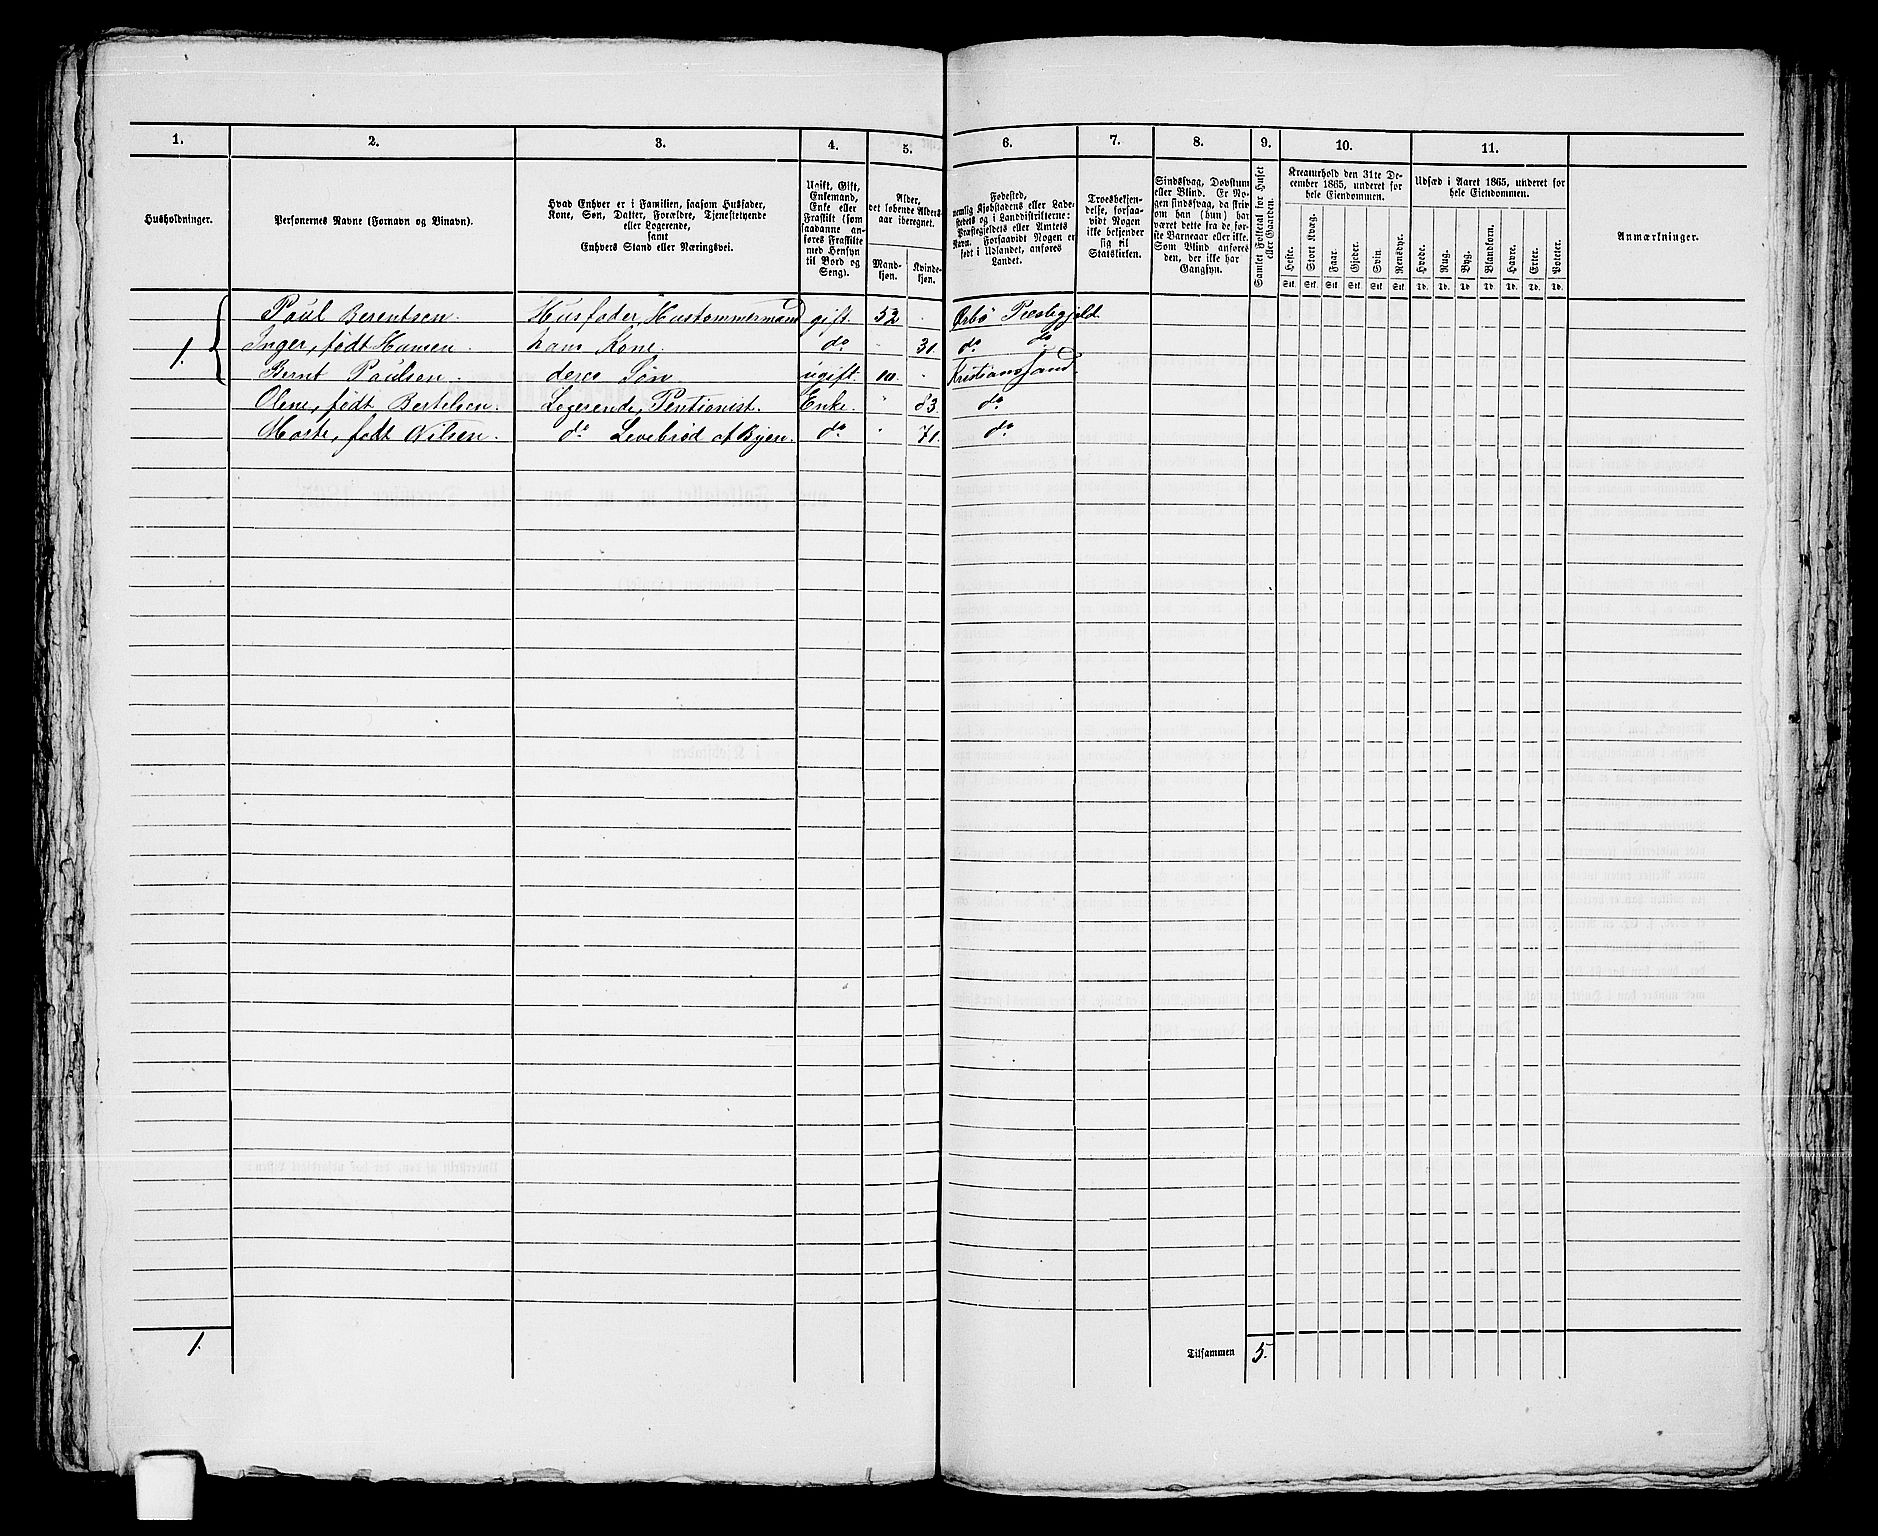 1. 2. 3. 4. 5. 6. 7. 8. 9. 10. 11.
Husholdninger.
Personernes Navne (Fornavn og Binavn).
Hvad Enhver er i Familien, saasom Husfader,
Kone, Søn, Datter, Forældre, Tjenestetyende
eller Logerende,
samt
Enhvers Stand eller Næringsvei.
Ugift, Gift,
Enkemand,
Enke eller
Fraskilt (som
saadanne an-
føres Fraskilte
med Hensyn
til Bord og
Seng).
Alder,
det løbende Alders-
aar iberegnet.
Mand-
kjøn.
Kvinde-
kjøn.
Fødested,
nemlig Kjøbstadens eller Lade-
stedets og i Landdistrikterne:
Præstegjeldets eller Amtets
Navn. Forsaavidt Nogen er
født i Udlandet, anføres
Landet.
Troesbekjen-
delse, forsaa-
vidt Nogen
ikke bekjender
sig til
Statskirken.
Sindssvag, Døvstum
eller Blind. Er No-
gen sindssvag, da skriv
om han (hun) har
været dette fra de før-
ste Barneaar eller ikke.
Som Blind anføres
den, der ikke har
Gangsyn.
Samlet Folketal for Huset
eller Gaarden.
Kreaturhold den 31te De-
cember 1865, underet for
hele Eiendommen.
Heste. Stort Kvæg. Faar. Gjeder. Svin. Rensdyr.
Stk. Stk. Stk. Stk. Stk. Stk.
Udsæd i Aaret 1865, underet for
hele Eiendommen.
Hvede. Rug. Byg. Blandkorn. Havre. Erter. Poteter.
Td. Td. Td. Td. Td. Td. Td.
Anmærkninger.
Paul Berentsen. Husfader, Hustømmermand gift. 52 . Ørbø Præstegjeld.
1. Inger, født Hansen. hans Kone. do " 31. do do
Bernt Paulsen. deres Søn ugift. 10. . Kristianssand.
Olene, født Bertelsen. Logerende, Pentionist. Enke. " 83. do
født Nilsen. do Levebrød af Byen. do " 71. do
1. Tilsammen 5.